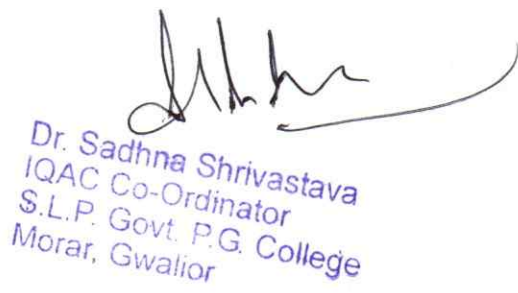 Dr. Sadhna Shrivastava
IQAC Co-Ordinator
S.L.P. Govt. P.G. College
Morar, Gwalior